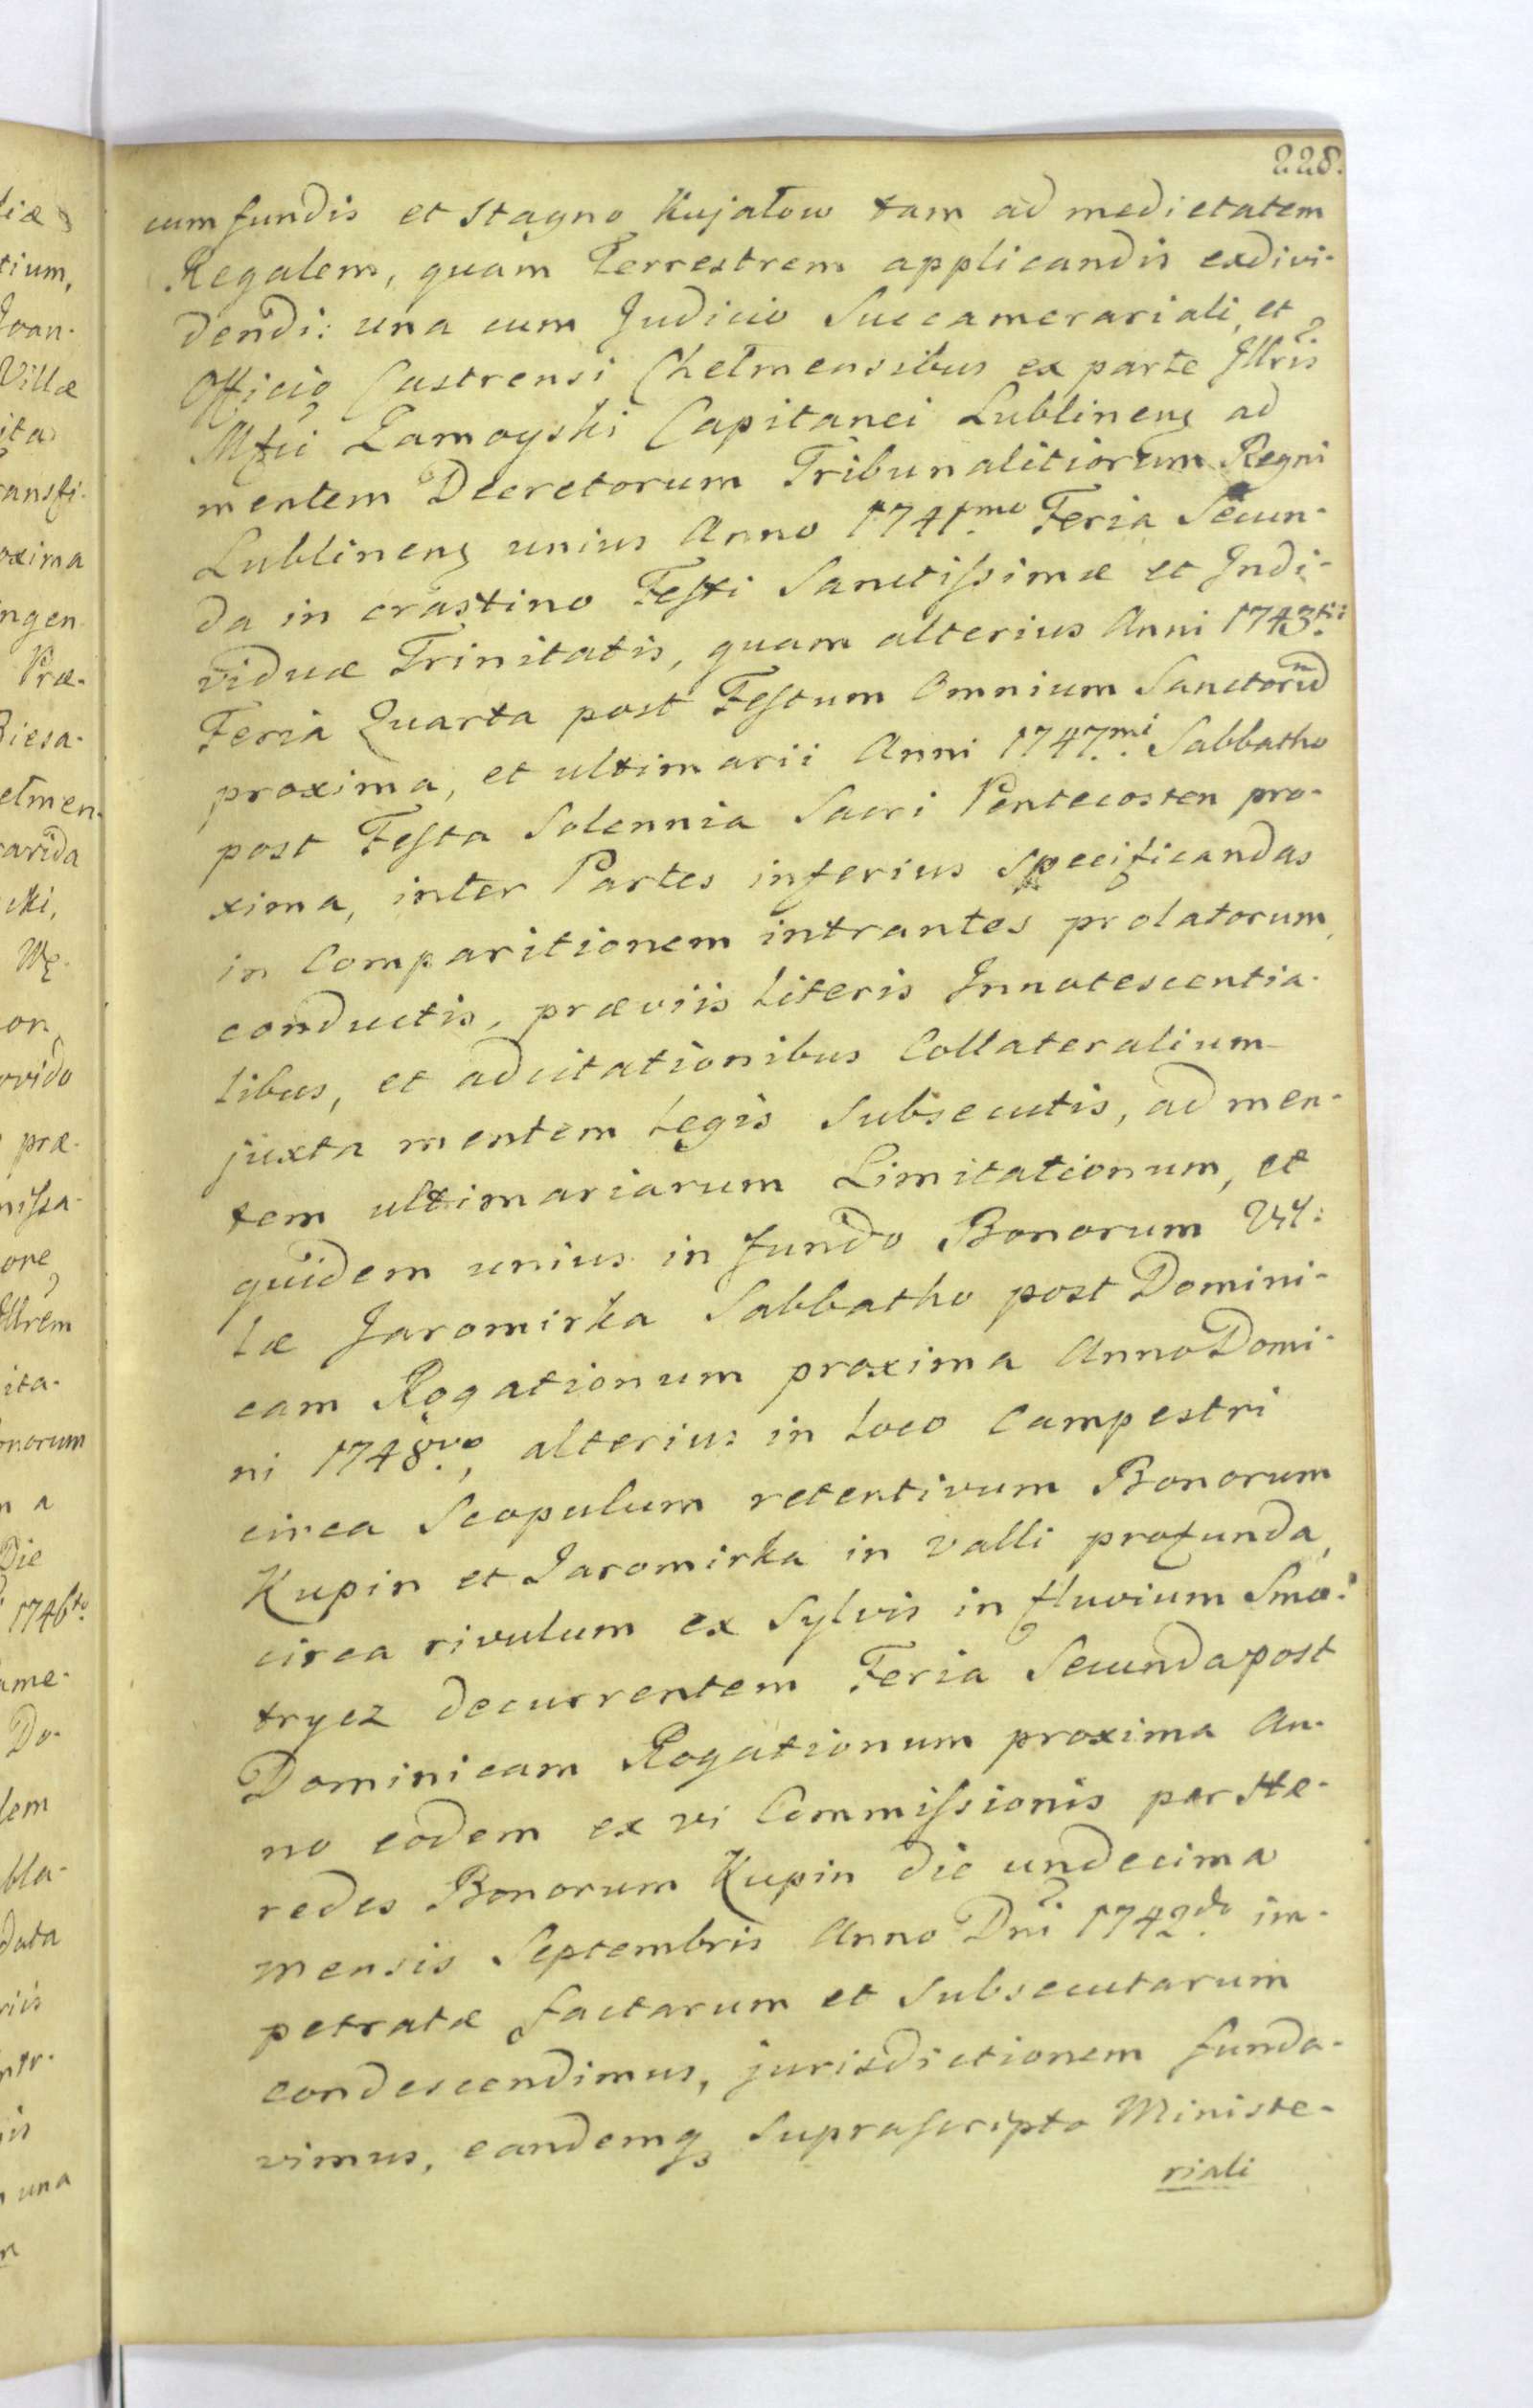 228.
cum fundis et Stagno Kujatow tam ad medietatem
Regalem, quam Terrestrem applicandis exdivi-
dendi: una cum Judicio Succamerariali, et
Officio Castrensi Chelmensibus ex parte Illris
Mfci Zamoyski Capitanei Lublinens ad
mentem Decretorum Tribunalitiorum Regni
Lublinens unius Anno 1741mo Feria Secun-
da in crastino Festi Sanctissimæ et Indi-
viduæ Trinitatis, quam alterius Anni 1743tii
Feria Quarta post Festum Omnium Sanctorum
proxima, et ultimarii Anni 1747mi Sabbatho
post Festa Solennia Sacri Pentecosten pro-
xima, inter Partes inferius specificandas
in Comparitionem intrantes prolatorum,
conductis, præviis Literis Innotescentia-
libus, et adcitationibus Collateralium
juxta mentem Legis subsecutis, ad men-
tem ultimariarum Limitationum, et
quidem unius in fundo Bonorum Vil-
læ Jaromirka Sabbatho post Domini-
cam Rogationum proxima Anno Domi-
ni 1748vo, alterius in Loco Campestri
circa Scopulum retentivum Bonorum
Kupin et Jaromirka in valli profunda,
circa rivulum ex Sylvis in fluvium Smo-
trycz decurrentem Feria Secunda post
Dominicam Rogationum proxima An-
no eodem ex vi Commissionis per Hæ-
redes Bonorum Kupin die undecima
mensis Septembris Anno Dni 1742do im-
petratæ factarum et subsecutarum
condescendimus, jurisdictionem funda-
vimus, eandemq suprascripto Ministe-
riali